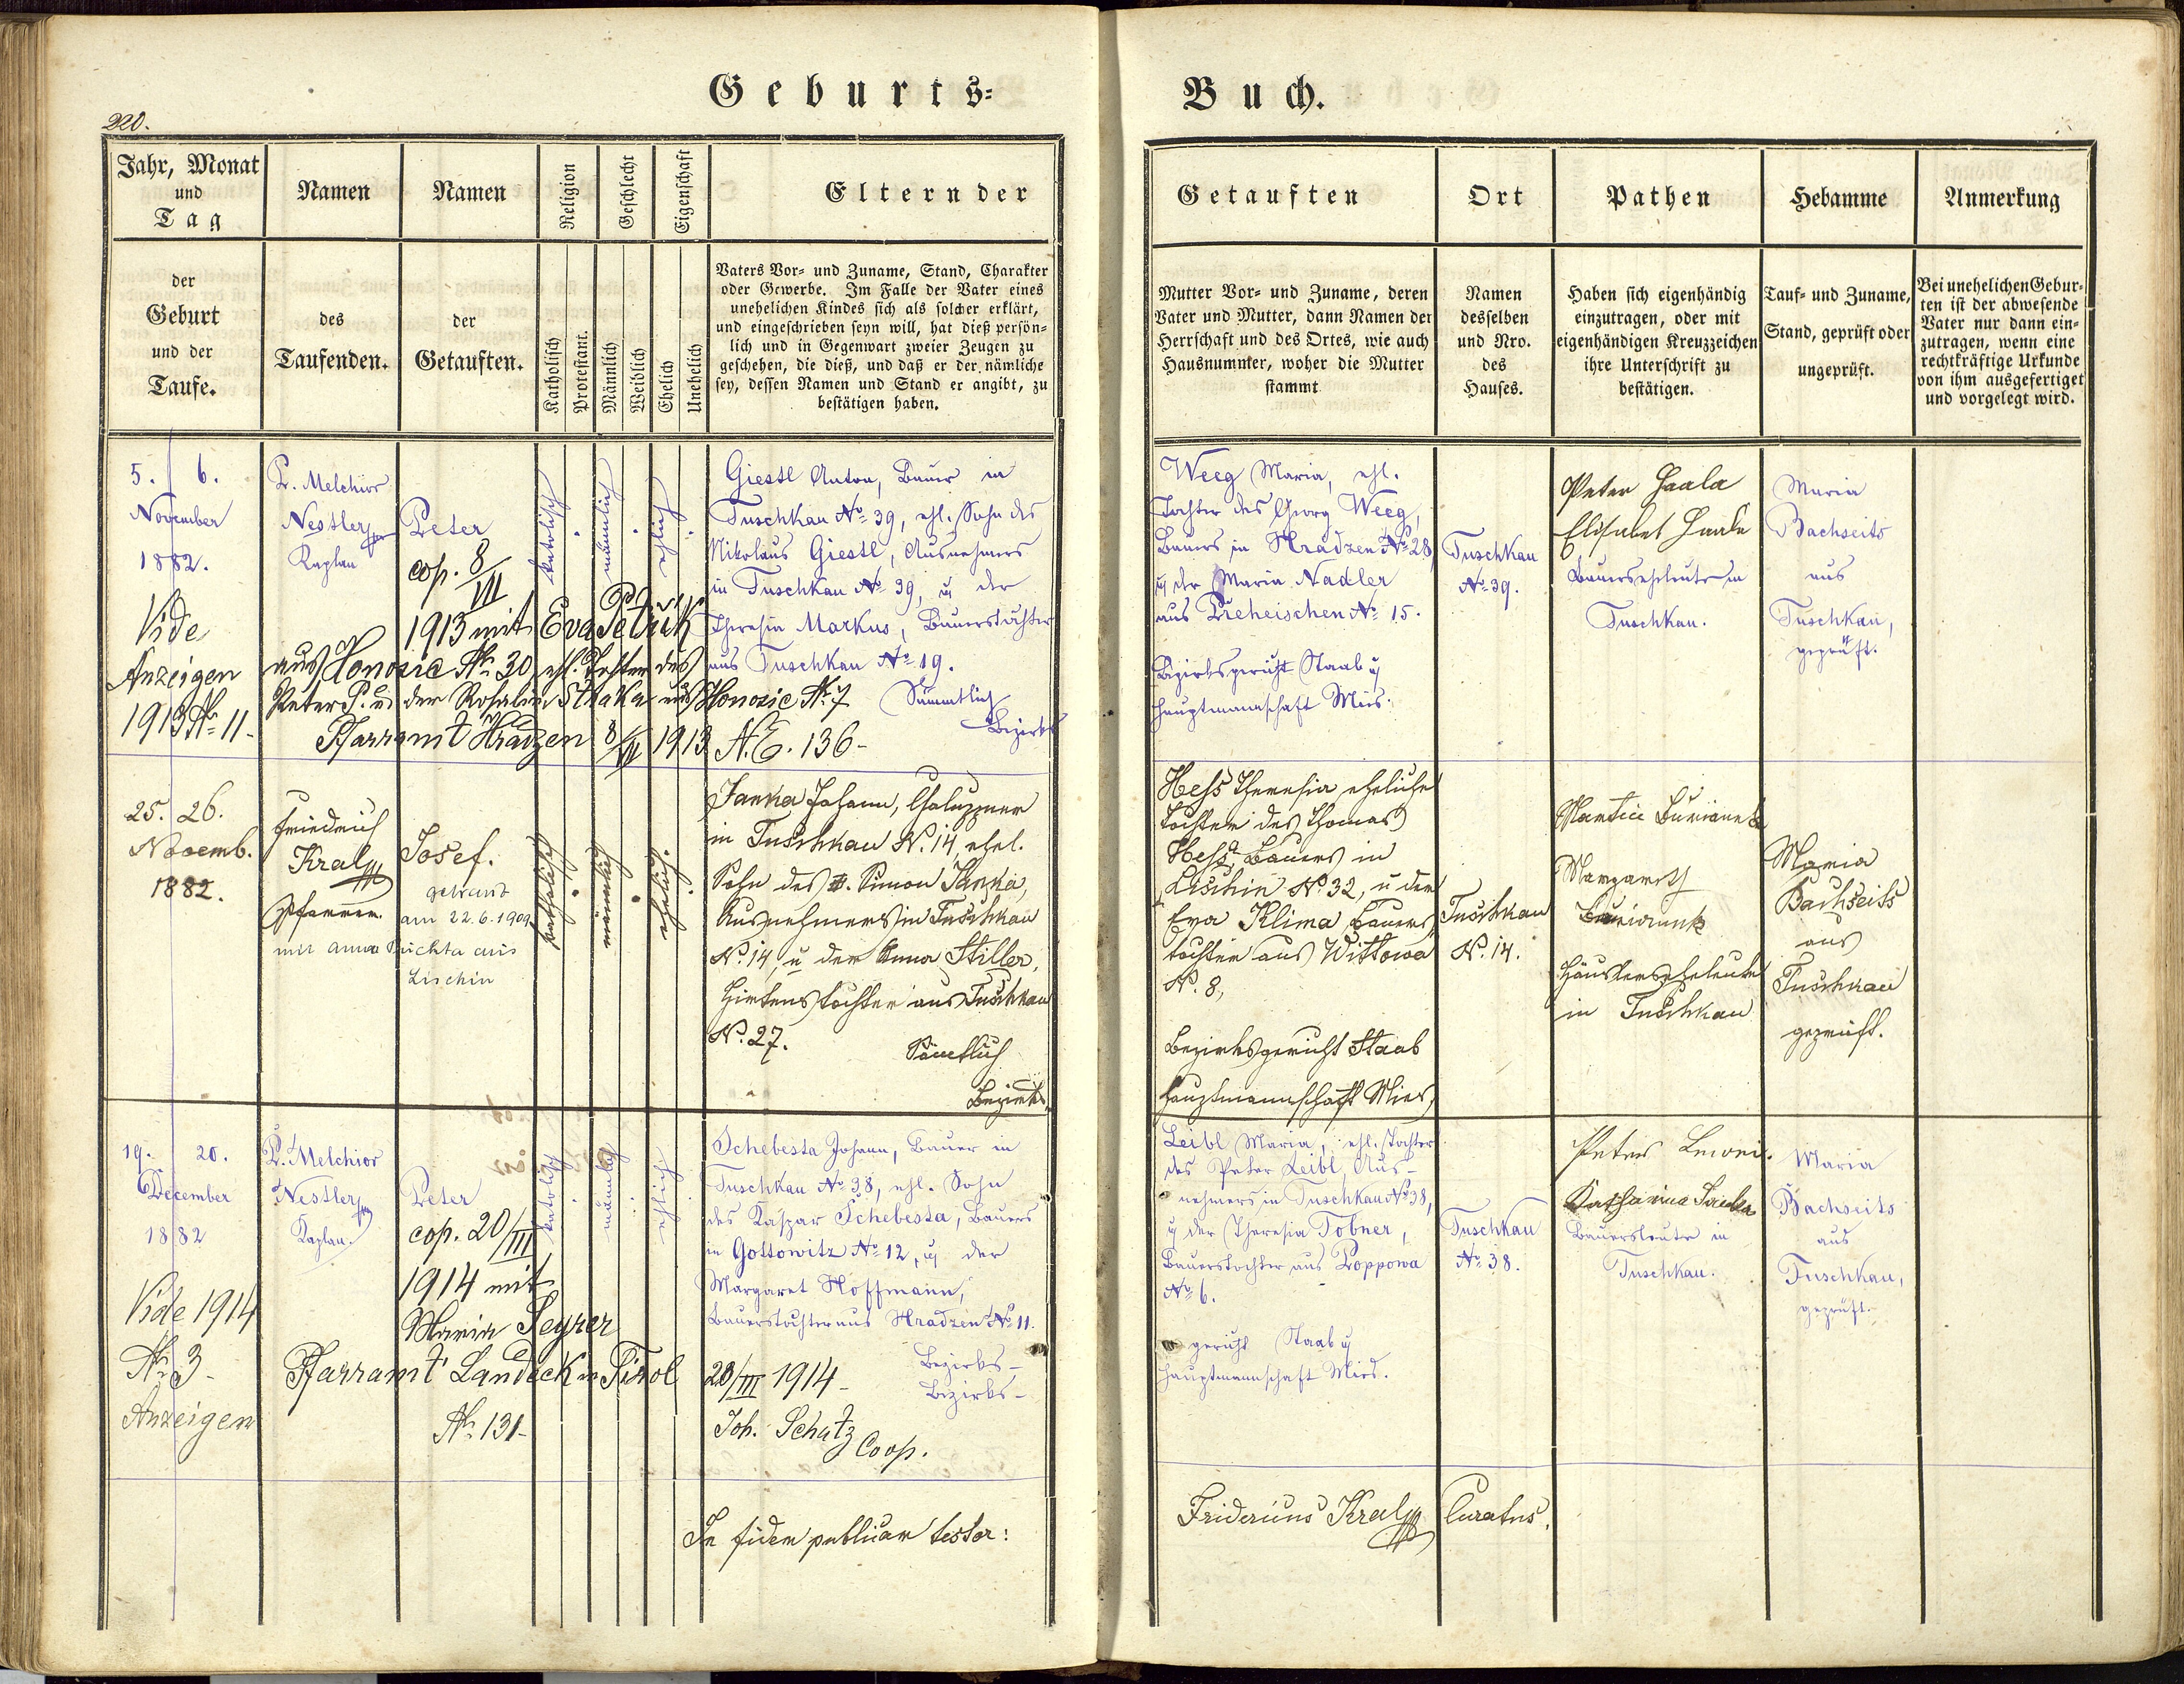 Geburts-
Buch.
220.
Jahr, Monat
und
Tag
der
Geburt
und der
Taufe.
Namen
des
Taufenden.
Namen
der
Getauften.
Religion
Katholisch
Protestant.
Geschlecht
Männlich
Weiblich
Eigenschaft
Ehelich
Unehelich
Eltern der
Vaters Vor- und Zuname, Stand, Charakter
oder Gewerbe. Im Falle der Vater eines
unehelichen Kindes sich als solcher erklärt,
und eingeschrieben seyn will, hat dieß persön-
lich und in Gegenwart zweier Zeugen zu
geschehen, die dieß, und daß er der nämliche
sey, dessen Namen und Stand er angibt, zu
bestätigen haben.
Getauften
Mutter Vor- und Zuname, deren
Vater und Mutter, dann Namen der
Herrschaft und des Ortes, wie auch
Hausnummer, woher die Mutter
stammt
Ort
Namen
desselben
und Nro.
des
Hauses.
Pathen
Haben sich eigenhändig
einzutragen, oder mit
eigenhändigen Kreuzzeichen
ihre Unterschrift zu
bestätigen.
Hebamme
Tauf- und Zuname,
Stand, geprüft oder
ungeprüft.
Anmerkung
Bei unehelichen Gebur-
ten ist der abwesende
Vater nur dann ein-
zutragen, wenn eine
rechtkräftige Urkunde
von ihm ausgefertiget
und vorgelegt wird.
5. 6.
November
1882.
Vide
Anzeigen
1913 No 11.
P. Melchior
Nestler
Kaplan
Peter
cop. 8/VII
1913 mit Eva Petrik
aus Honosic No 30, ehl. Tochter des
Peter P. u. der Rosalia Straka aus Honosic No 7
Pfarramt Hradzen 8/VII 1913 N.E. 136-
katolisch
männlich
ehlich
Giestl Anton, Bauer in
Tuschkau No 39, ehl. Sohn des
Nikolaus Giestl, Ausnehmers
in Tuschkau No 39, u der
Theresia Markus, Bauerstochter
aus Tuschkau No 19.
Sämmtlich
Bezirks
Weeg Maria, ehl.
Tochter des Georg Weeg,
Bauers in Hradzen No 28
u der Maria Nadler
aus Preheischen No 15.
Bezirksgericht Staab u
Hauptmannschaft Mies.
Tuschkau
No 39.
Peter Haala
Elisabet Haala
Bauerseheleute in
Tuschkau.
Maria
Bachseits
aus
Tuschkau,
geprüft.
25. 26.
Novemb.
1882.
Friedrich
Kral
Pfarrer.
Josef.
getraut
am 22.6.1909
mit Anna Puchta aus
Lischin
katholisch
männlich
ehelich.
Janka Johann, Chaluppner
in Tuschkau N. 14, ehel.
Sohn des Simon Janka,
Ausnehmers in Tuschkau
No. 14, u der Anna Stiller,
Hirtenstochter aus Tuschkau
No. 27.
Sämtlich
Bezirks
Hess Theresia eheliche
Tochter des Thomas
Hess, Bauers in
Lischin No. 32, u der
Eva Klima, Bauers
tochter aus Wittowa
No. 8,
Bezirksgericht Staab
Hauptmannschaft Mies,
Tuschkau
N. 14.
Martin Burianek
Margareth
Burianek
Häuslerseheleute
in Tuschkau
Maria
Bachseits
aus
Tuschkau
geprüft.
19. 20.
December
1882
Vide 1914
No 3-
Anzeigen
P. Melchior
Nestler
Kaplan.
Peter
cop. 20/III
1914 mit
Maria Seyrer
Pfarramt Landeck in Tirol 20/III 1914-
No. 131-
Joh. Schatz
Coop.
katolisch
männlich
ehlich
Schebesta Johann, Bauer in
Tuschkau No 38, ehl. Sohn
des Kaspar Schebesta, Bauers
in Gottowitz No 12, u der
Margaret Hoffmann,
Bauerstochter aus Hradzen No 11.
Bezirks-
Bezirks-
Leibl Maria, ehl. Tochter
des Peter Leibl, Aus-
nehmers in Tuschkau No 38,
u der Theresia Tobner,
Bauerstochter aus Poppowa
No 6.
gericht Staab u
Hauptmannschaft Mies.
Tuschkau
No 38.
Peter
Katharina
Bauersleute in
Tuschkau.
Maria
Bachseits
aus
Tuschkau,
geprüft.
In fidem publicam testor:
Fridericus Kral Curatus.